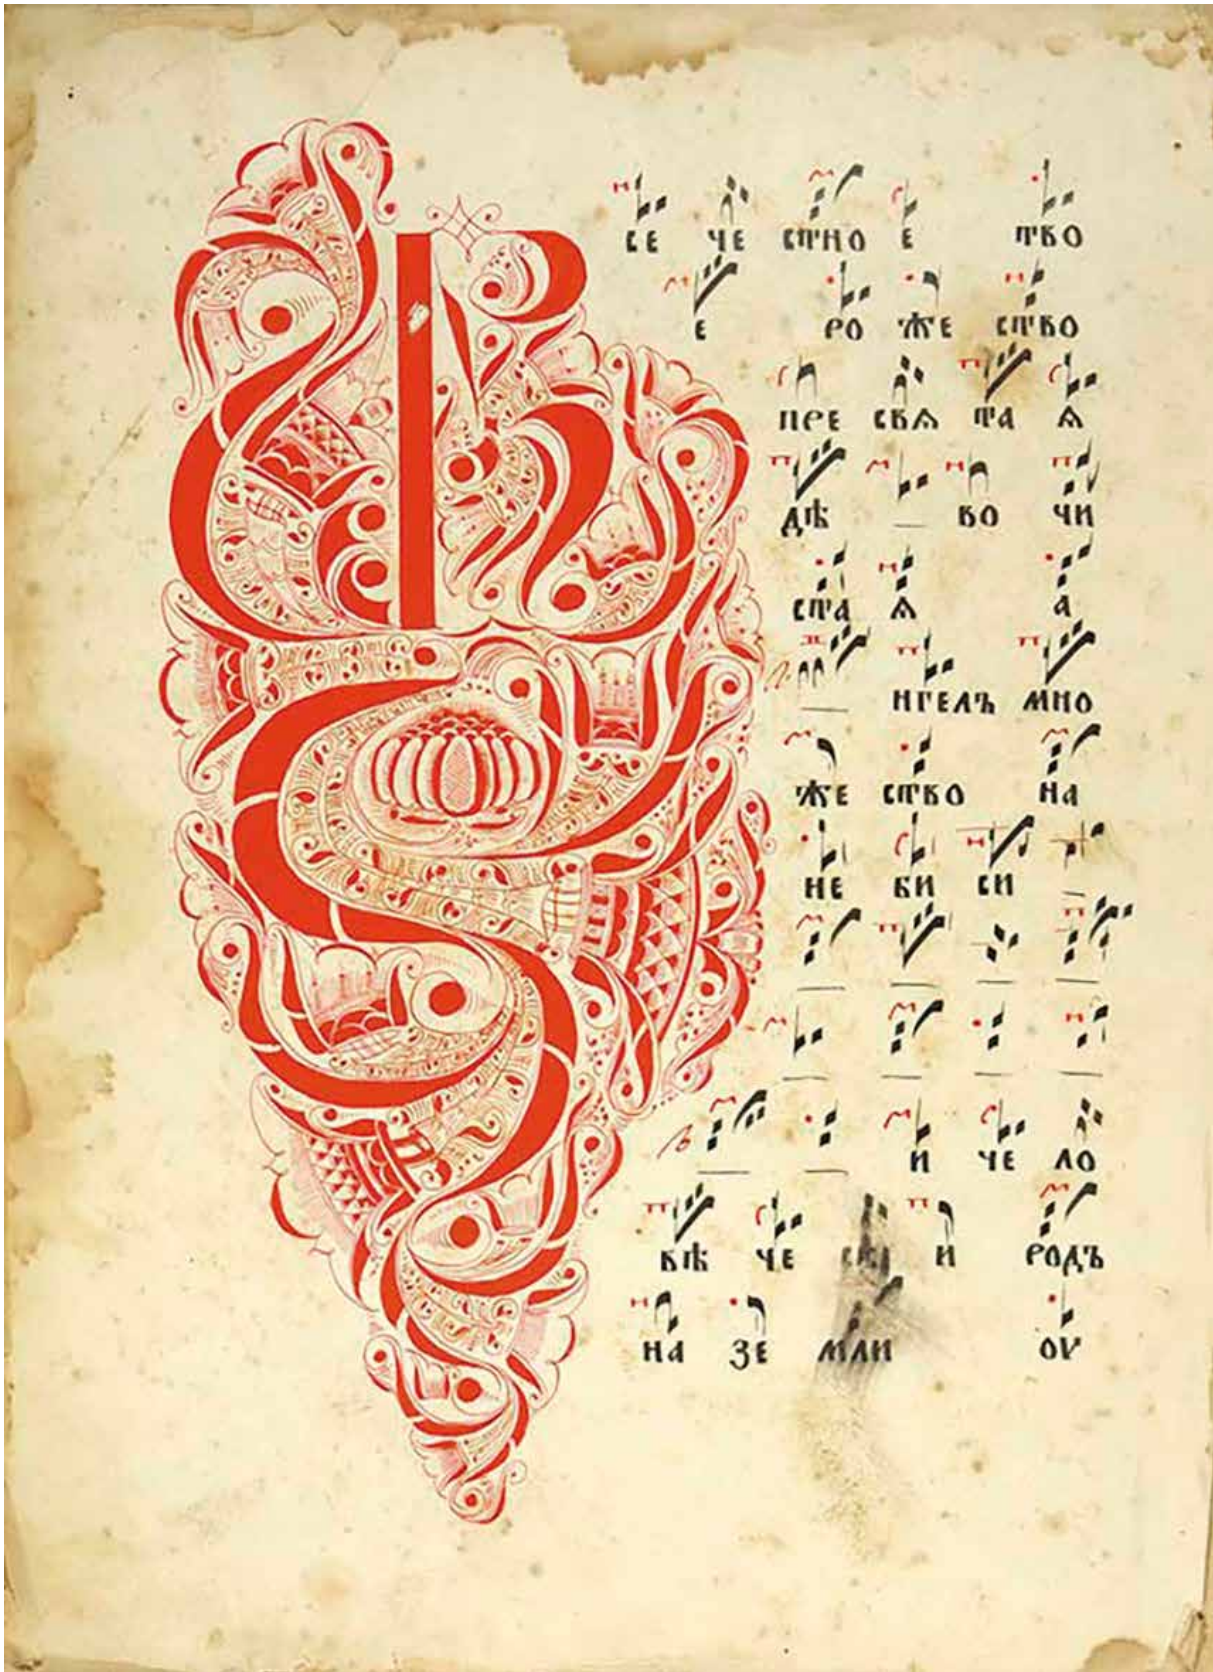 СЕ ЧЕ СТНО Е ТВО
Е РО ЖЕ СТВО
ПРЕ СВѦ ТА Ѧ
ДѢ — ВО ЧИ
СТА Ѧ А
— НГЕЛЪ МНО
ЖЕ СТВО НА
НЕ БИ СИ —
— — — —
— — — —
— — И ЧЕ ЛО
ВѢ ЧЕ СКІ И РОДЪ
НА ЗЕ МЛИ ОУ